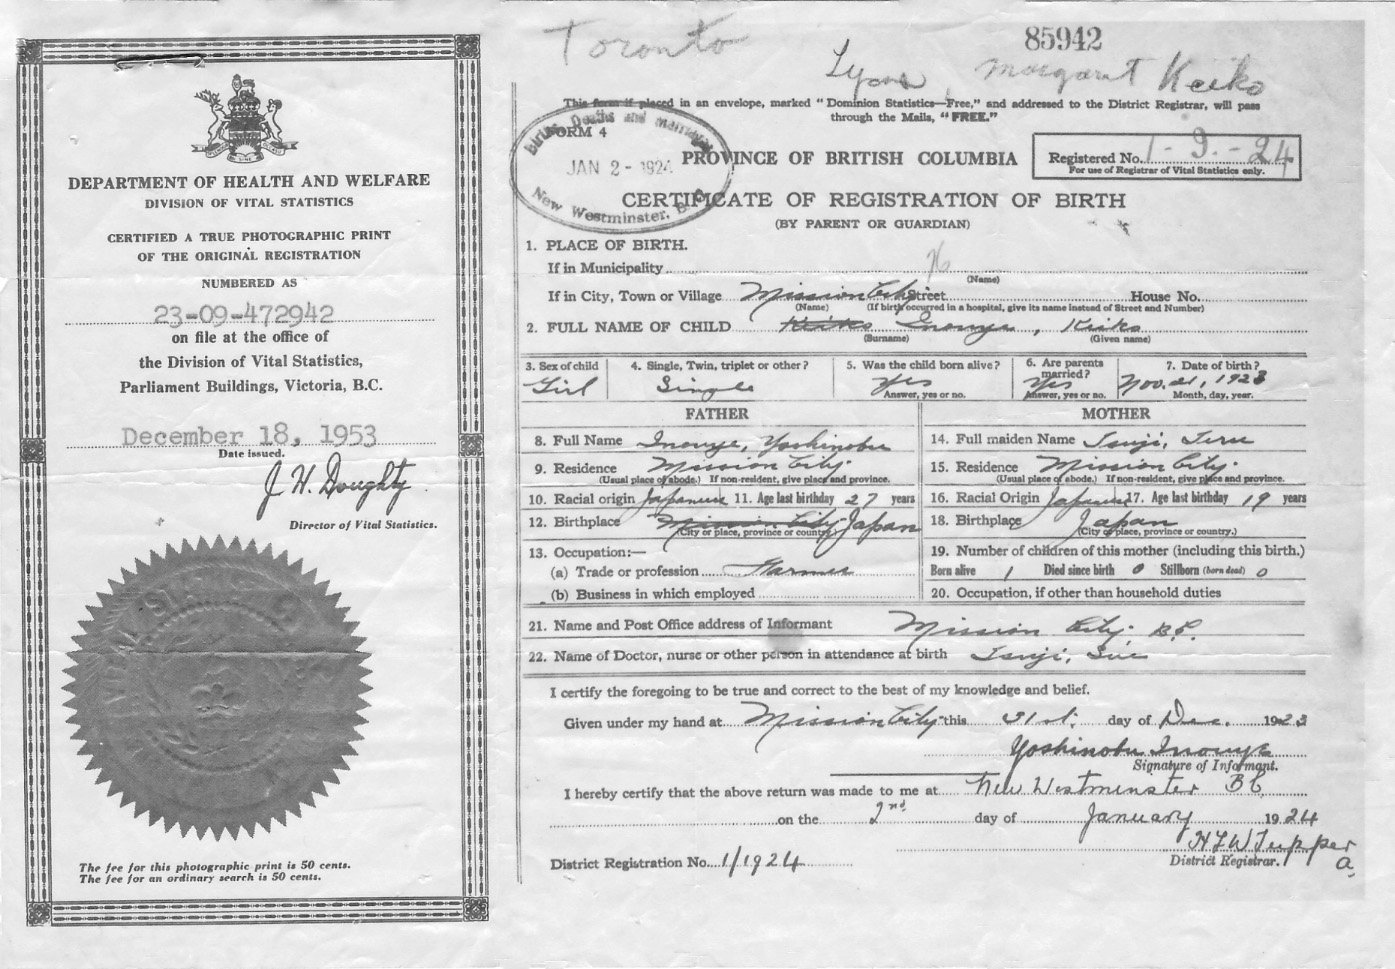 DEPARTMENT OF HEALTH AND WELFARE
DIVISION OF VITAL STATISTICS
CERTIFIED A TRUE PHOTOGRAPHIC PRINT
OF THE ORIGINAL REGISTRATION
NUMBERED AS
23-09-472942
on file at the office of
the Division of Vital Statistics,
Parliament Buildings, Victoria, B.C.
December 18, 1953
Date issued.
J. W. Doughty
Director of Vital Statistics.
The fee for this photographic print is 50 cents.
The fee for an ordinary search is 50 cents.
Toronto
85942
Lyons, Margaret Keiko
This form if placed in an envelope, marked "Dominion Statistics—Free," and addressed to the District Registrar, will pass
through the Mails, "FREE."
FORM 4
Births, Deaths and marriages
JAN 2 - 1924
New Westminster, B.C.
PROVINCE OF BRITISH COLUMBIA
Registered No. 1-9-24
For use of Registrar of Vital Statistics only.
CERTIFICATE OF REGISTRATION OF BIRTH
(BY PARENT OR GUARDIAN)
1. PLACE OF BIRTH.
If in Municipality
(Name)
If in City, Town or Village Mission City Street House No.
(Name) (If birth occurred in a hospital, give its name instead of Street and Number)
2. FULL NAME OF CHILD Keiko Inouye, Keiko
(Surname) (Given name)
3. Sex of child 4. Single, Twin, triplet or other? 5. Was the child born alive? 6. Are parents married? 7. Date of birth?
Girl Single Yes Yes Nov. 21, 1923
Answer, yes or no. Answer, yes or no. Month, day, year.
FATHER MOTHER
8. Full Name Inouye, Yoshinobu 14. Full maiden Name Tsuji, Teru
9. Residence Mission City 15. Residence Mission City
(Usual place of abode.) If non-resident, give place and province. (Usual place of abode.) If non-resident, give place and province.
10. Racial origin Japanese 11. Age last birthday 27 years 16. Racial Origin Japanese 17. Age last birthday 19 years
12. Birthplace Mission City Japan 18. Birthplace Japan
(City or place, province or country.) (City or place, province or country.)
13. Occupation:— 19. Number of children of this mother (including this birth.)
(a) Trade or profession Farmer Born alive 1 Died since birth 0 Stillborn (born dead) 0
(b) Business in which employed 20. Occupation, if other than household duties
21. Name and Post Office address of Informant Mission City, B.C.
22. Name of Doctor, nurse or other person in attendance at birth Tsuji,
I certify the foregoing to be true and correct to the best of my knowledge and belief.
Given under my hand at Mission City this 31st. day of Dec. 1923
Yoshinobu Inouye
Signature of Informant.
I hereby certify that the above return was made to me at New Westminster BC
on the 2nd day of January 1924
H L W Tupper
District Registrar.
District Registration No. 1/1924